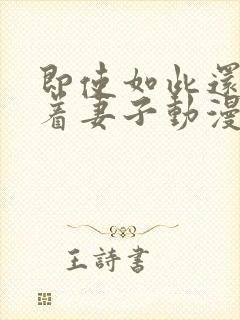 即使如此還
着妻子動漫
王詩書